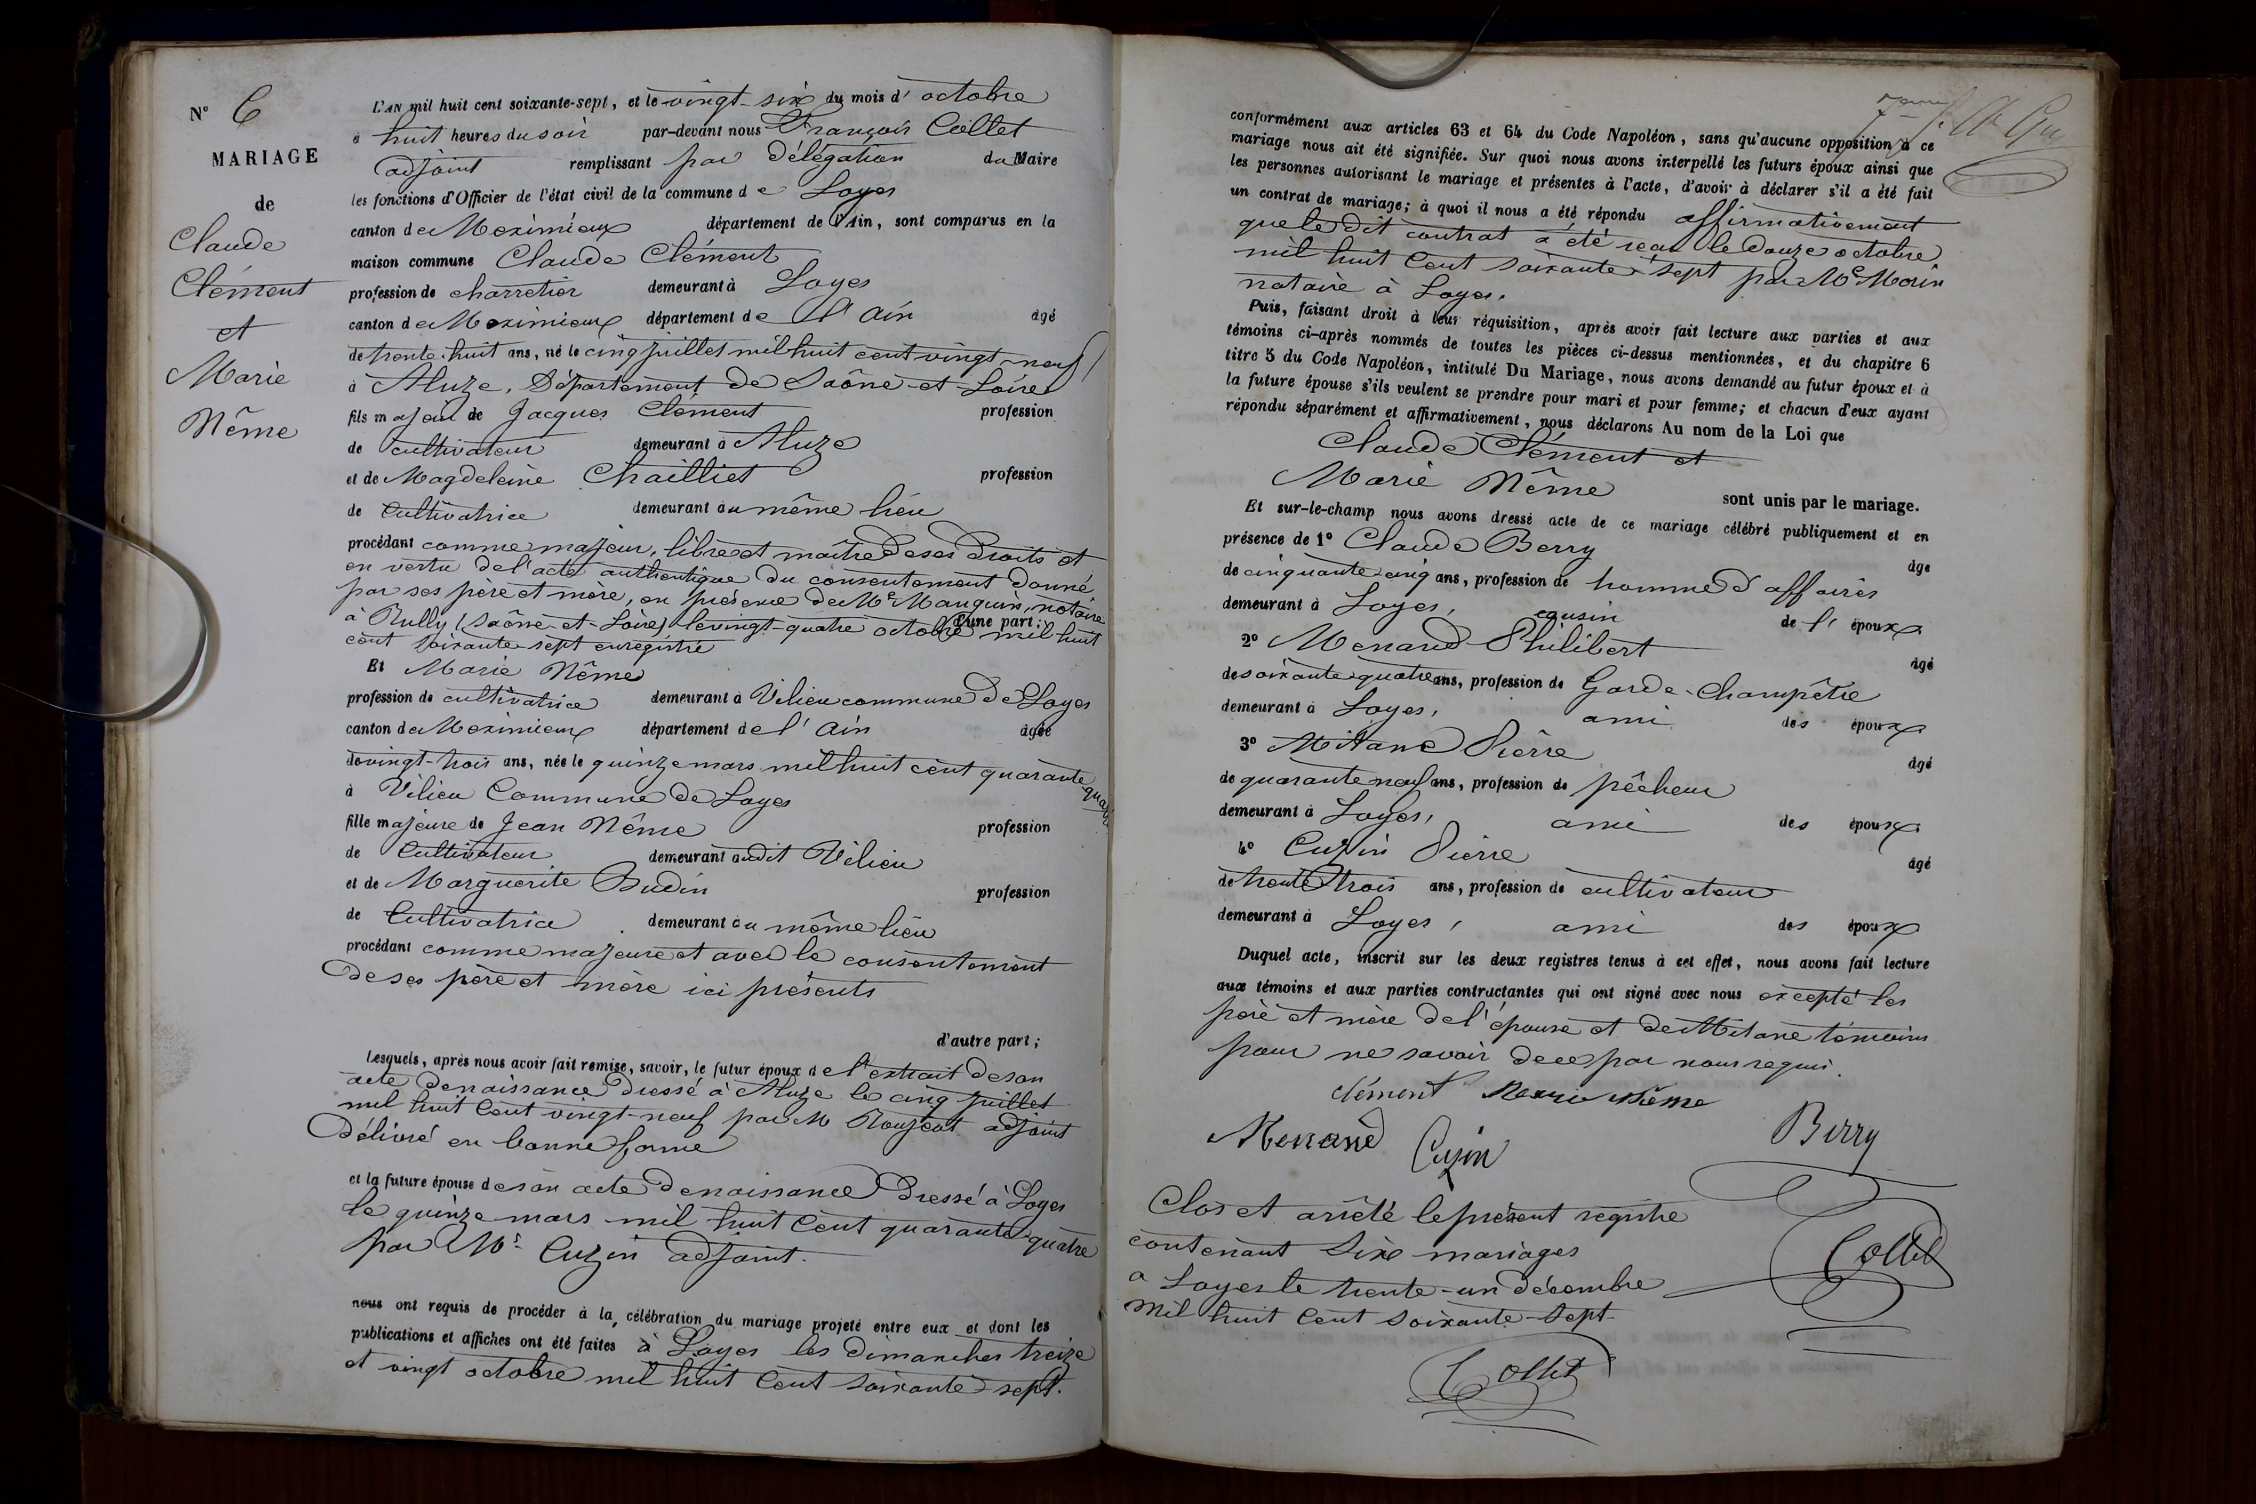 N° 6
MARIAGE
de
Claude
Clément
et
Marie
Même
L'AN mil huit cent soixante-sept, et le vingt-six du mois d'octobre
à huit heures du soir par-devant nous François Collet
adjoint remplissant par délégation du Maire
les fonctions d'Officier de l'état civil de la commune de Loyes
canton de Meximieux département de l'Ain, sont comparus en la
maison commune Claude Clément
profession de charretier demeurant à Loyes
canton de Meximieux département de l'Ain âgé
de trente-huit ans, né le cinq juillet mil huit cent vingt-neuf
à Aluze, Département de Saône-et-Loire
fils majeur de Jacques Clément profession
de cultivateur demeurant à Aluze
et de Magdeleine Chailliet profession
de Cultivatrice demeurant au même lieu
procédant comme majeur, libre et maître de ses droits et
en vertu de l'acte authentique du consentement donné
par ses père et mère, en présence de Me Mauguin, notaire
à Rully (Saône-et-Loire) le vingt-quatre octobre mil huit
d'une part;
cent soixante-sept enregistré
Et Marie Même
profession de cultivatrice demeurant à Vilieu commune de Loyes
canton de Meximieux département de l'Ain âgée
de vingt-trois ans, née le quinze mars mil huit cent quarante
quatre
à Vilieu Commune de Loyes
fille majeure de Jean Même profession
de Cultivateur demeurant audit Vilieu
et de Marguerite Budin profession
de Cultivatrice demeurant au même lieu
procédant comme majeure et avec le consentement
de ses père et mère ici présents
d'autre part;
Lesquels, après nous avoir fait remise, savoir, le futur époux de l'extrait de son
acte de naissance dressé à Aluze le cinq juillet
mil huit cent vingt-neuf par M adjoint
Délivré en bonne forme
et la future épouse de son acte de naissance dressé à Loyes
le quinze mars mil huit cent quarante-quatre
par Mr Cuzin adjoint.
nous ont requis de procéder à la célébration du mariage projeté entre eux et dont les
publications et affiches ont été faites à Loyes les dimanches treize
et vingt octobre mil huit cent soixante-sept.
conformément aux articles 63 et 64 du Code Napoléon, sans qu'aucune opposition à ce
mariage nous ait été signifiée. Sur quoi nous avons interpellé les futurs époux ainsi que
les personnes autorisant le mariage et présentes à l'acte, d'avoir à déclarer s'il a été fait
un contrat de mariage; à quoi il nous a été répondu affirmativement
que le dit contrat a été reçu le douze octobre
mil huit cent soixante-sept par Me Morin
notaire à Loyes.
Puis, faisant droit à leur réquisition, après avoir fait lecture aux parties et aux
témoins ci-après nommés de toutes les pièces ci-dessus mentionnées, et du chapitre 6
titre 5 du Code Napoléon, intitulé Du Mariage, nous avons demandé au futur époux et à
la future épouse s'ils veulent se prendre pour mari et pour femme; et chacun d'eux ayant
répondu séparément et affirmativement, nous déclarons Au nom de la Loi que
Claude Clément et
Marie Même
sont unis par le mariage.
Et sur-le-champ nous avons dressé acte de ce mariage célébré publiquement et en
présence de 1° Claude Berry âge
de cinquante-cinq ans, profession de homme d'affaires
demeurant à Loyes, cousin de l'époux
2° Menand Philibert âgé
de soixante-quatre ans, profession de Garde-Champêtre
demeurant à Loyes, ami des époux
3° Mitane Pierre âgé
de quarante-neuf ans, profession de pêcheur
demeurant à Loyes, ami des époux
4° Cuzin Pierre âgé
de trente-trois ans, profession de cultivateur
demeurant à Loyes, ami des époux
Duquel acte, inscrit sur les deux registres tenus à cet effet, nous avons fait lecture
aux témoins et aux parties contractantes qui ont signé avec nous excepté les
père et mère de l'épouse et de Mitane témoins
pour ne savoir de ce par nous requis.
Clément Marie Même
Menand Cuzin Berry
Collet
Clos et arrêté le présent registre
contenant Six mariages
a Loyes le trente-un décembre
Mil huit cent soixante-sept
Collet